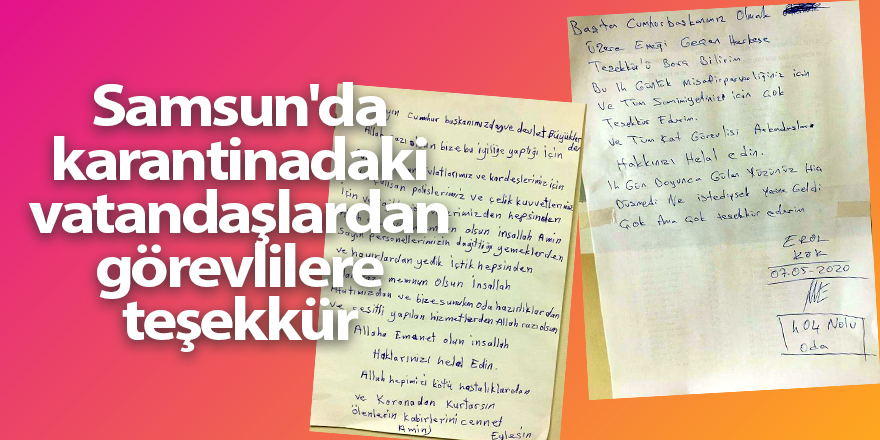 Samsun'da
karantinadaki
vatandaşlardan
görevlilere
teşekkür
Cumhur başkanımızdan ve devlet büyükler
den
Allah razı olsun bize bu iyiliğe yaptığı için
ve kardeşlerimiz için
polislerimiz ve çelik kuvvetlerimiz
hepsinden
olsun insallah Amin
personellerimizin dağıttığı yemeklerden
ve hayırlardan yedik içtik hepsinden
memnun olsun İnsallah
ve bize sunulan oda hazırlıklardan
ve çeşitli yapılan hizmetlerden Allah razı olsun
Allaha Emanet olun insallah
Haklarınızı helal Edin.
Allah hepimizi kötü hastalıklardan
ve Koronadan Kurtarsın
ölenlerin kabirlerini cennet
Eylesin
Amin)
Başta Cumhurbaşkanımız Olmak
Üzere Emeği Geçen Herkese
Teşekkür'ü Borç Bilirim
Bu 14 Günlük Misafirperverliğiniz için
Ve Tüm Samimiyetiniz için Çok
Teşekkür Ederim.
Ve Tüm Kat Görevlisi Arkadaşlar
Hakkınızı Helal edin.
14 Gün Boyunca Gülen Yüzünüz Hiç
Düşmedi Ne istediysek Geldi
Çok Ama Çok teşekkür ederim
EROL
KÖK
07-05-2020
404 Nolu
Oda